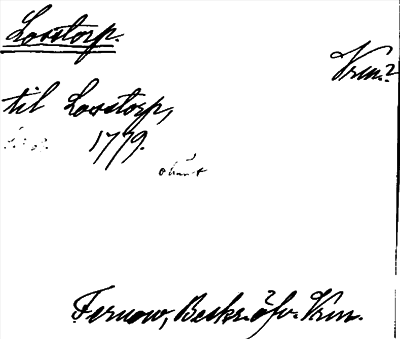 Losstorp.
Vrm.?
til Losstorp,
1779.
okänt
Fernow, Beskr. öfv. Vrm.